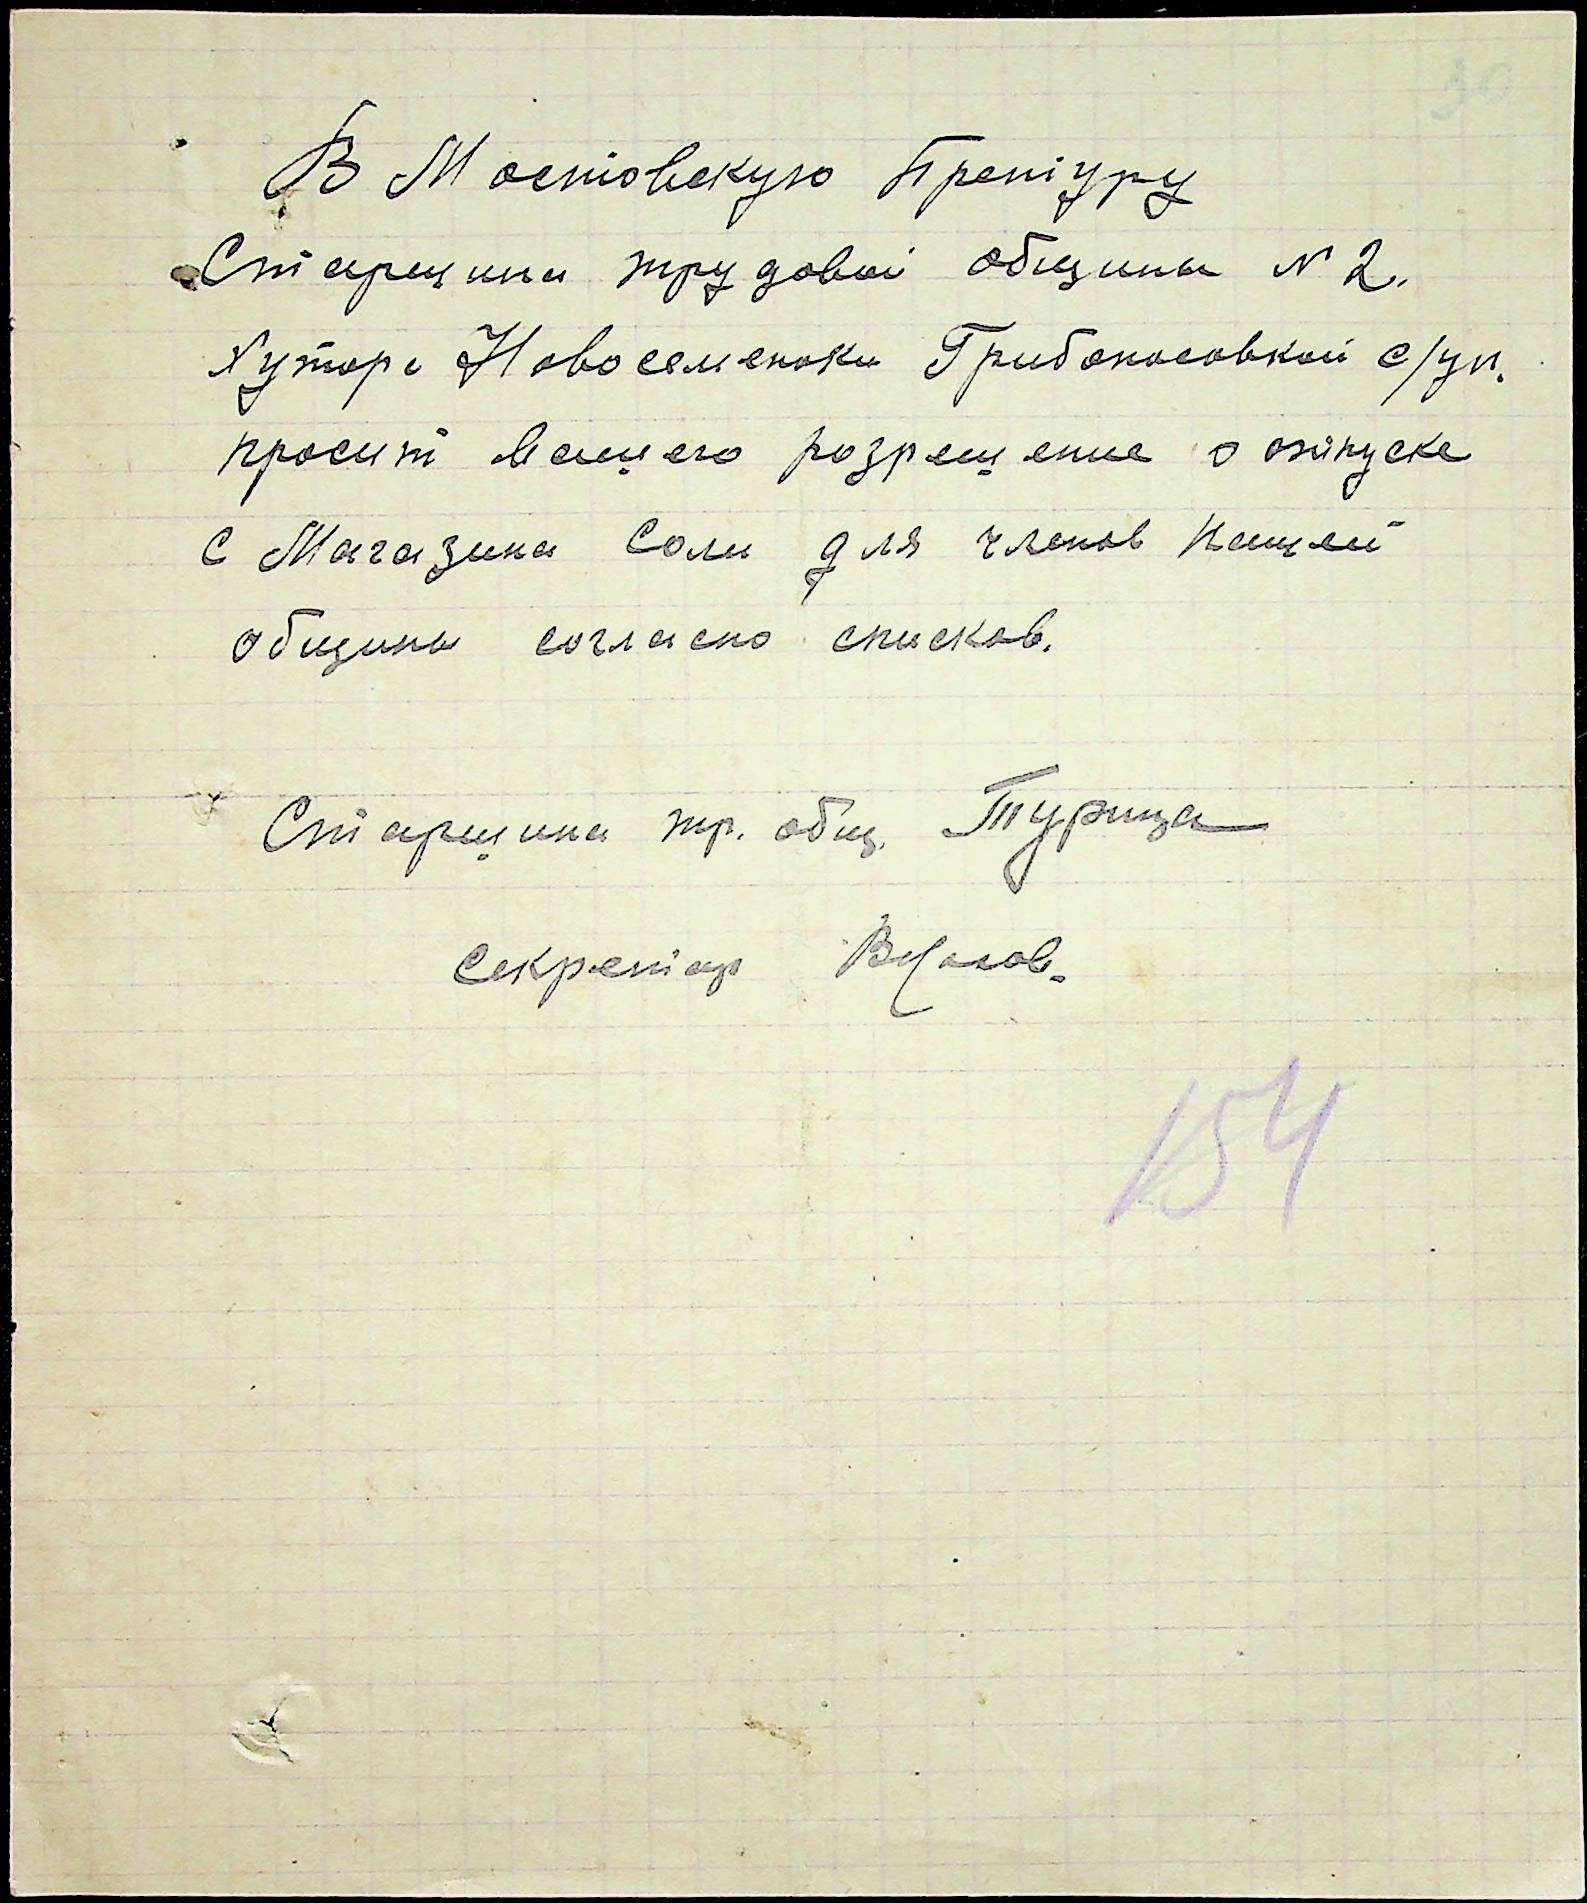 30
В Мостовскую Претуру
Старшина трудовой общины N 2.
Хутора Новоселенока Грибоносовкой с/уп.
просит вашего розрешение о отпуске
с Магазина Соли для членов нашей
общины согласно списков.
Старшина тр. общ. Турица
Секретар
154